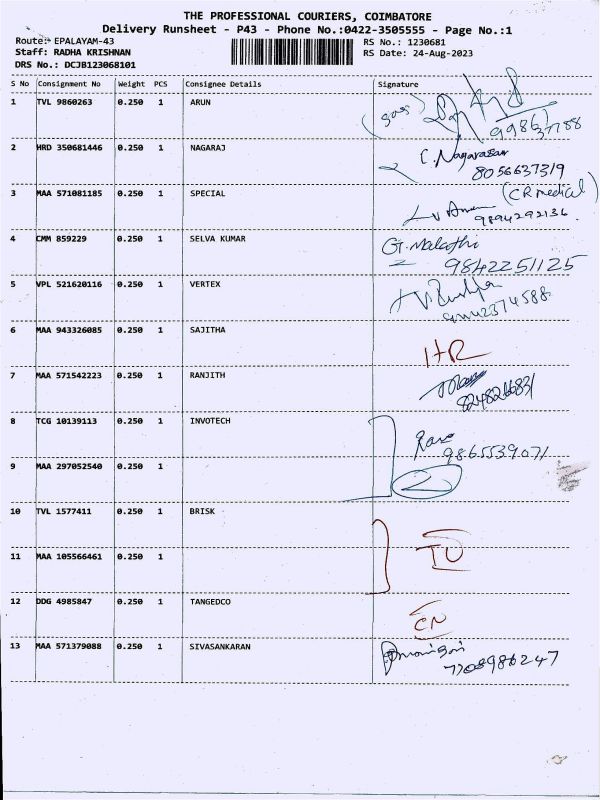 THE PROFESSIONAL COURIERS, COIMBATORE
Delivery Runsheet - P43 - Phone No.:0422-3505555 - Page No.:1
Route:- EPALAYAM-43 RS No.: 1230681
Staff: RADHA KRISHNAN RS Date: 24-Aug-2023
DRS No.: DCJB123068101
S No Consignment No Weight PCS Consignee Details Signature
1 TVL 9860263 0.250 1 ARUN
2 HRD 350681446 0.250 1 NAGARAJ C. Nagarasan
8056637319
3 MAA 571081185 0.250 1 SPECIAL (CR medical)
9894292136
4 CMM 859229 0.250 1 SELVA KUMAR G. Malathi
9842251125
5 VPL 521620116 0.250 1 VERTEX
6 MAA 943326085 0.250 1 SAJITHA
7 MAA 571542223 0.250 1 RANJITH
8 TCG 10139113 0.250 1 INVOTECH
9865539071
9 MAA 297052540 0.250 1
10 TVL 1577411 0.250 1 BRISK
11 MAA 105566461 0.250 1
12 DDG 4985847 0.250 1 TANGEDCO
13 MAA 571379088 0.250 1 SIVASANKARAN
7708986247